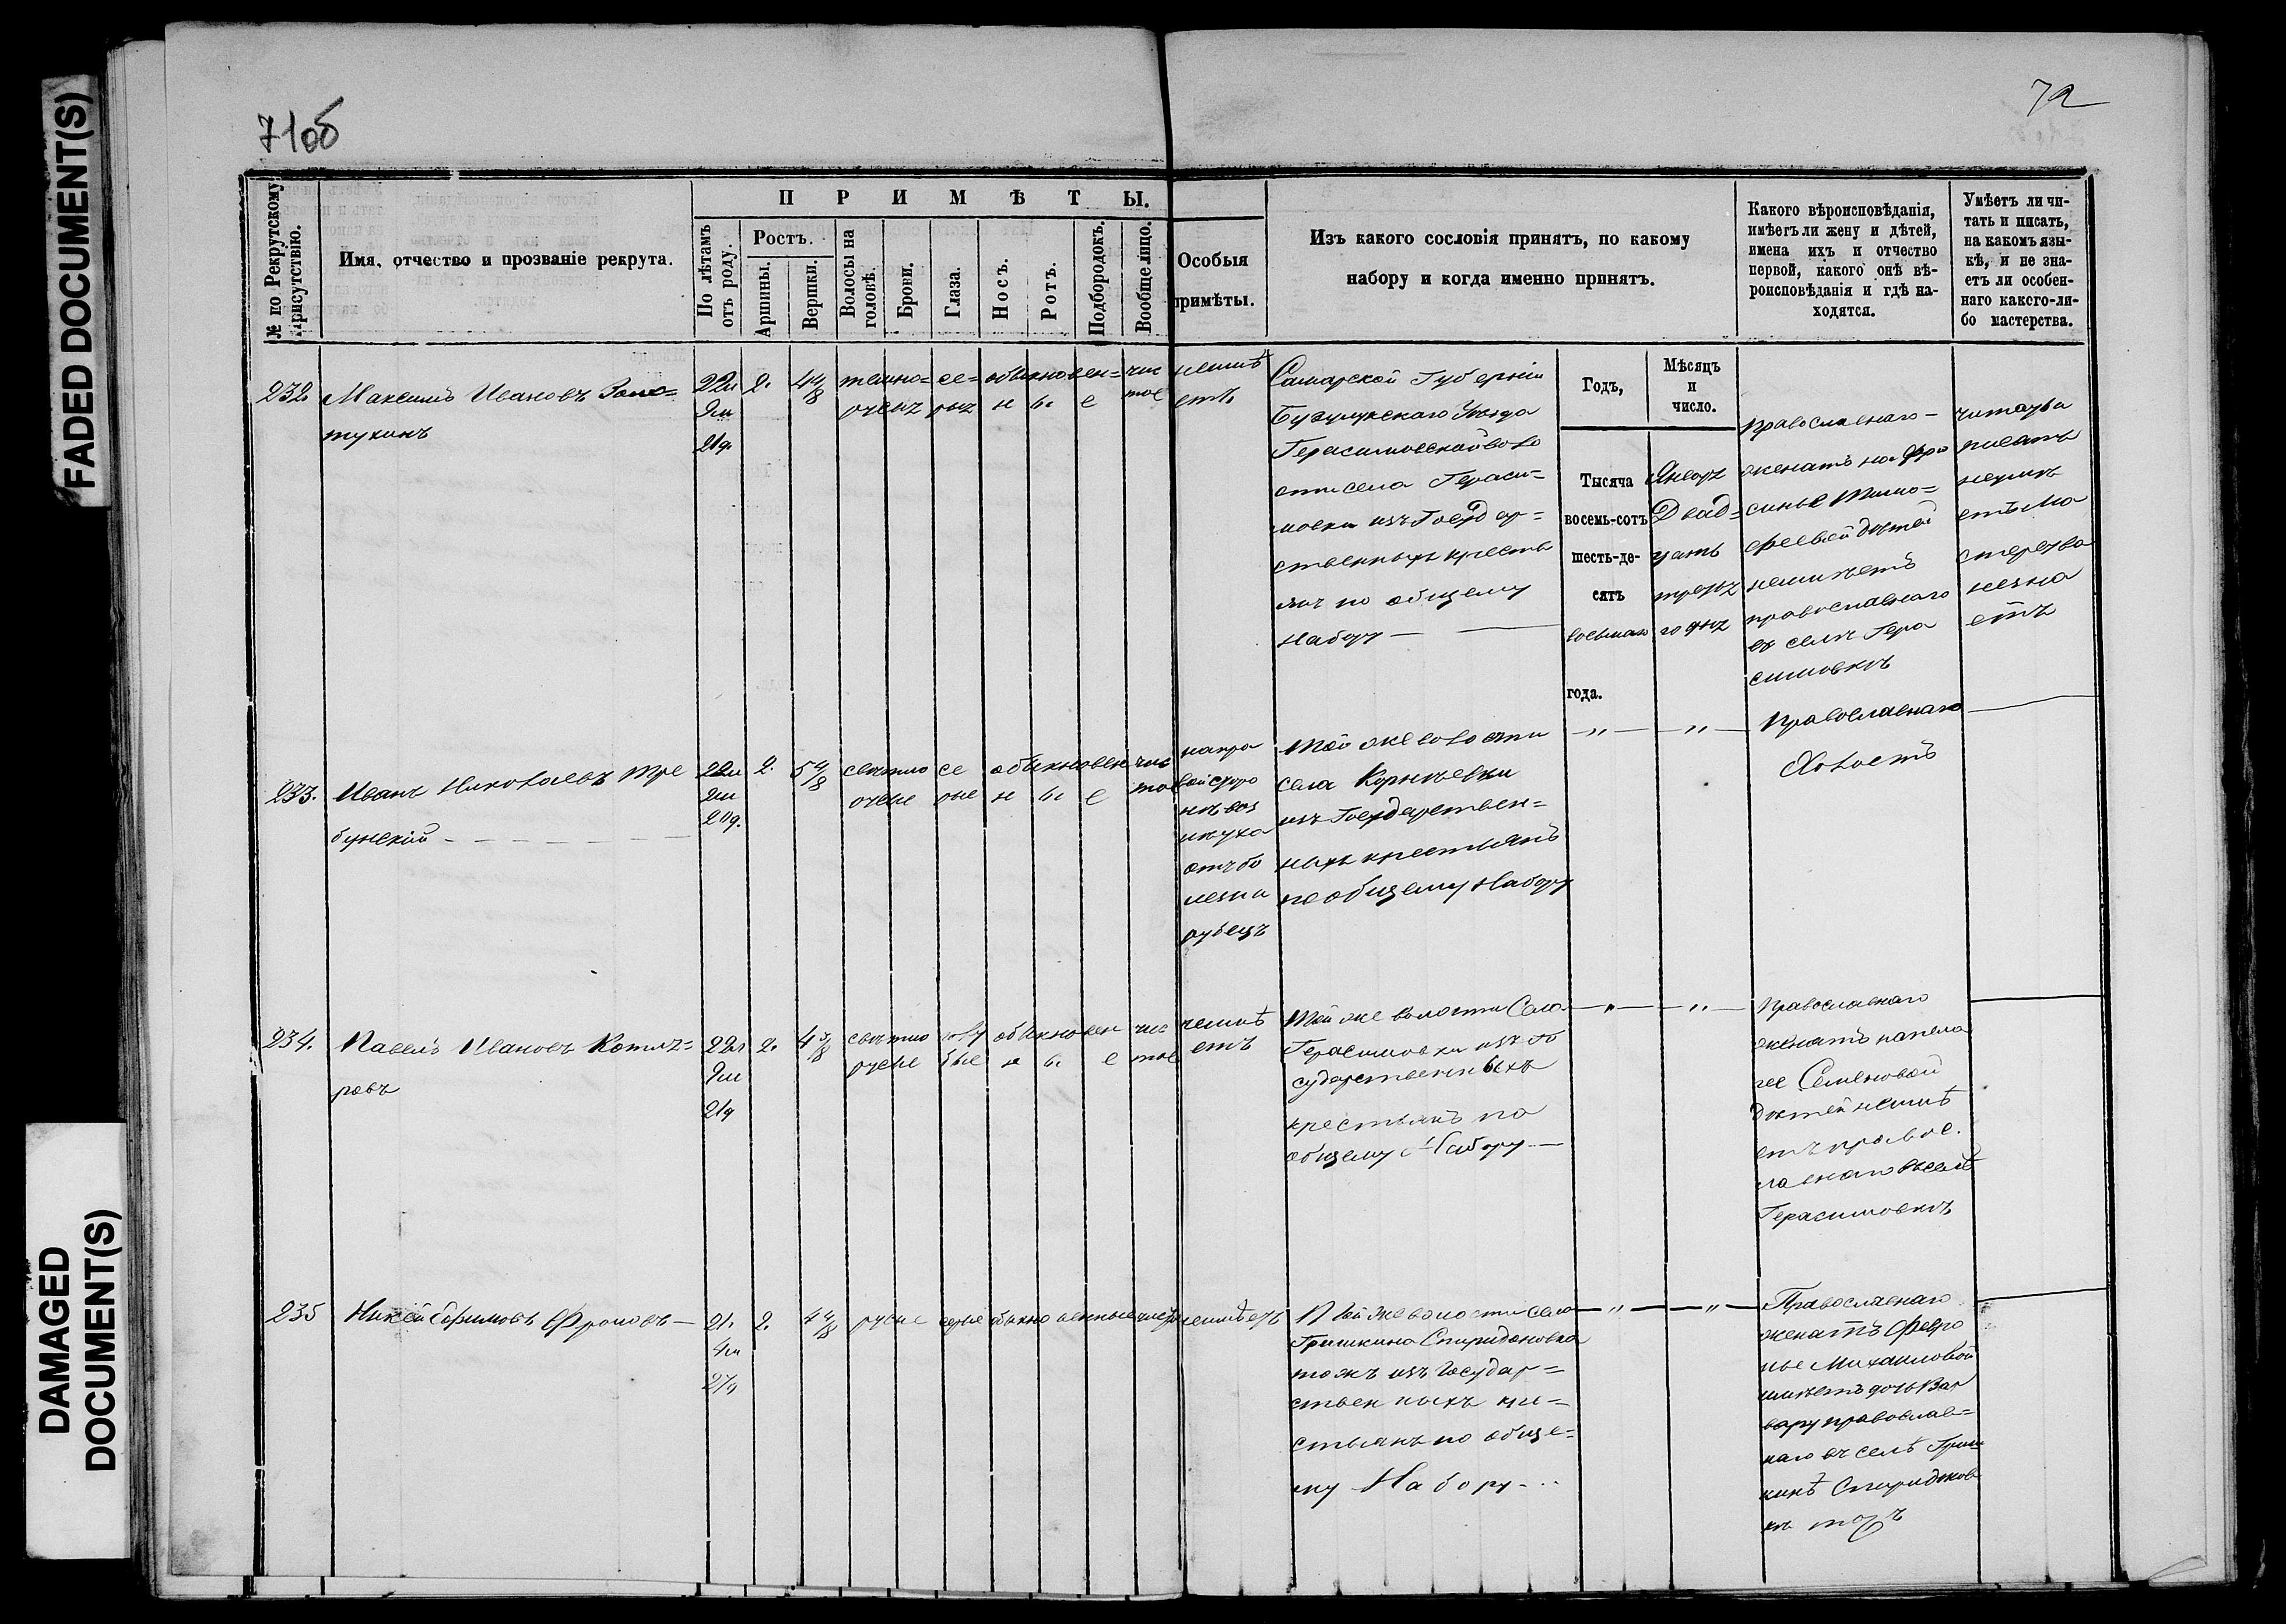 FADED DOCUMENT(S)
DAMAGED
DOCUMENT(S)
71об
72
№ по Рекрутскому
присутствію.
Имя, отчество и прозваніе рекрута.
ПРИМѢТЫ.
По лѣтамъ
отъ роду.
Ростъ.
Аршины.
Вершки.
Волосы на
головѣ.
Брови.
Глаза.
Носъ.
Ротъ.
Подбородокъ.
Вообще лицо.
Особыя
примѣты.
Изъ какого сословія принятъ, по какому
набору и когда именно принятъ.
Какого вѣроисповѣданія,
имѣетъ ли жену и дѣтей,
имена ихъ и отчество
первой, какого онѣ вѣ-
роисповѣданія и гдѣ на-
ходятся.
Умѣетъ ли чи-
тать и писать,
на какомъ язы-
кѣ, и не зна-
етъ ли особен-
наго какого-ли-
бо мастерства.
232
Максимъ Ивановъ
22л
9м
21д.
2.
4 4/8
темно=
русыя
се=
рыя
обыкновен=
н ы е
чис
тое
неимѣ
етъ
Самарской Губерніи
Бузулукскаго Уѣзда
Герасимовской воло
сти села Гераси=
мовки изъ Государ=
ственныхъ крестья
янъ по общему
набору —
Годъ,
Мѣсяцъ
и
число.
Тысяча
восемь-сотъ
шесть-де-
сятъ
восьмаго
года.
Января
Двад=
цать
третья
го дня
православнаго—
женатъ на Фро
синье Тимо=
феевой дѣтей
неимѣетъ
православнаго
въ селѣ Гера
симовкѣ
читать и
писать
неумѣ
етъ Ма
стерства
незна
етъ
233.
Иванъ Николаевъ Тре
бунскій
22л
2.
свѣтло
русые
се
рые
обыкновен
н ы е
чис
тое
направой сторо
нѣ воз
лѣ уха
отъ бо
лезни
рубецъ
Той же волости
села Корнѣевки
изъ Государствен=
ныхъ крестьянъ
по общему набору
— " — " —
Православнаго
Холостъ
234.
Павелъ Ивановъ
22л
9м
21д
2.
свѣтло
русые
голу
бые
обыкновен
н ы е
чис
тое
неимѣ
етъ
Той же волости Села
Герасимовки изъ Го
сударственныхъ
крестьянъ по
общему Набору —
— " — " —
Православнаго
женатъ на Пела
гее Семеновой
дѣтей неимѣ
етъ правос.
лавнаго въ селѣ
Герасимовкѣ
235
Ефимовъ Фроловъ —
21.
4м
27д
2.
4 4/8
русые
серые
обыкновенные
чистое
неимѣетъ
Той же волости села
Гришкина Спиридоновка
тожъ изъ Государ=
ственныхъ кре=
стьянъ по обще=
му Набору
— " — " —
Православнаго
женатъ Февро
нье Михаиловой
имѣетъ дочь Вар
вару православ=
наго въ селѣ Гриш
кинѣ Спиридонов
кѣ тожъ